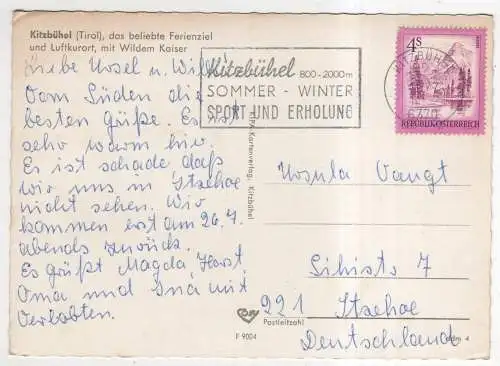 Kitzbühel (Tirol), das beliebte Ferienziel
und Luftkurort, mit Wildem Kaiser
Kitzbühel 800-2000m
SOMMER - WINTER
SPORT UND ERHOLUNG
KITZBÜHEL
6370
4S
REPUBLIK ÖSTERREICH
Liebe Ursel u.
Vom Süden die
besten Grüße. Es ist
sehr warm hier.
Es ist schade daß
wir uns in Itzehoe
nicht sehen. Wir
kommen erst am 26.7.
abends zurück.
Es grüßt Magda, Horst,
Oma und Ina mit
Verlobten.
Kartenverlag, Kitzbühel
Ursula Vangt
7
221 Itzehoe
Postleitzahl
Deutschland
F 9004